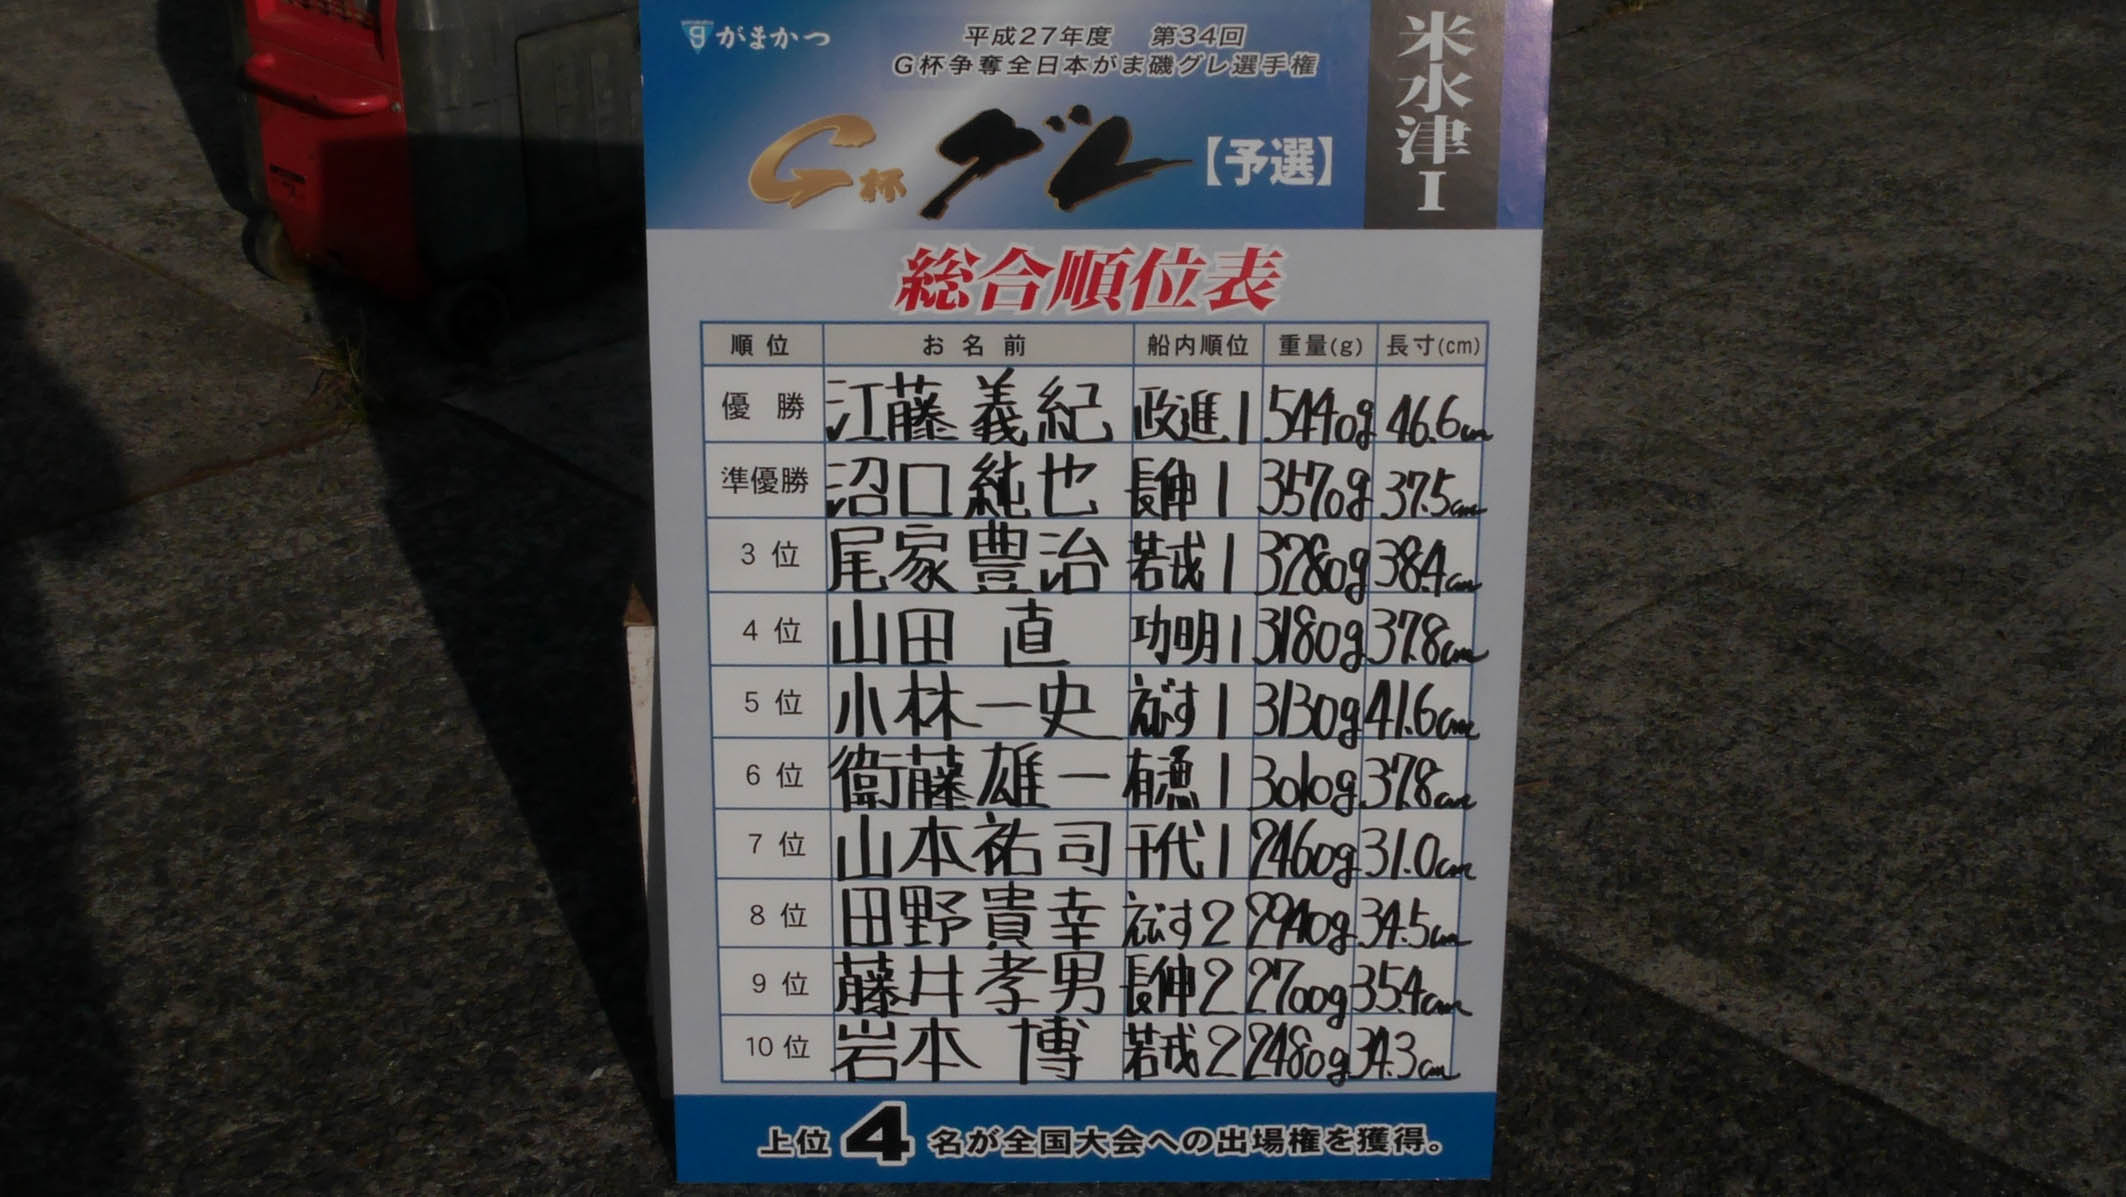 がまかつ
平成27年度 第34回
G杯争奪全日本がま磯グレ選手権
G杯グレ【予選】
米水津I
総合順位表
順位 お名前 船内順位 重量(g) 長寸(cm)
優勝 江藤義紀 政進1 5440g 46.6cm
準優勝 沼口純也 長伸1 3570g 37.5cm
3位 尾家豊治 若戎1 3280g 38.4cm
4位 山田直 功明1 3180g 37.8cm
5位 小林一史 えびす1 3130g 41.6cm
6位 衛藤雄一 有漁1 3010g 37.8cm
7位 山本祐司 千代1 2460g 31.0cm
8位 田野貴幸 えびす2 2940g 34.5cm
9位 藤井孝男 長伸2 2700g 35.4cm
10位 岩本博 若戎2 2480g 34.3cm
上位4名が全国大会への出場権を獲得。